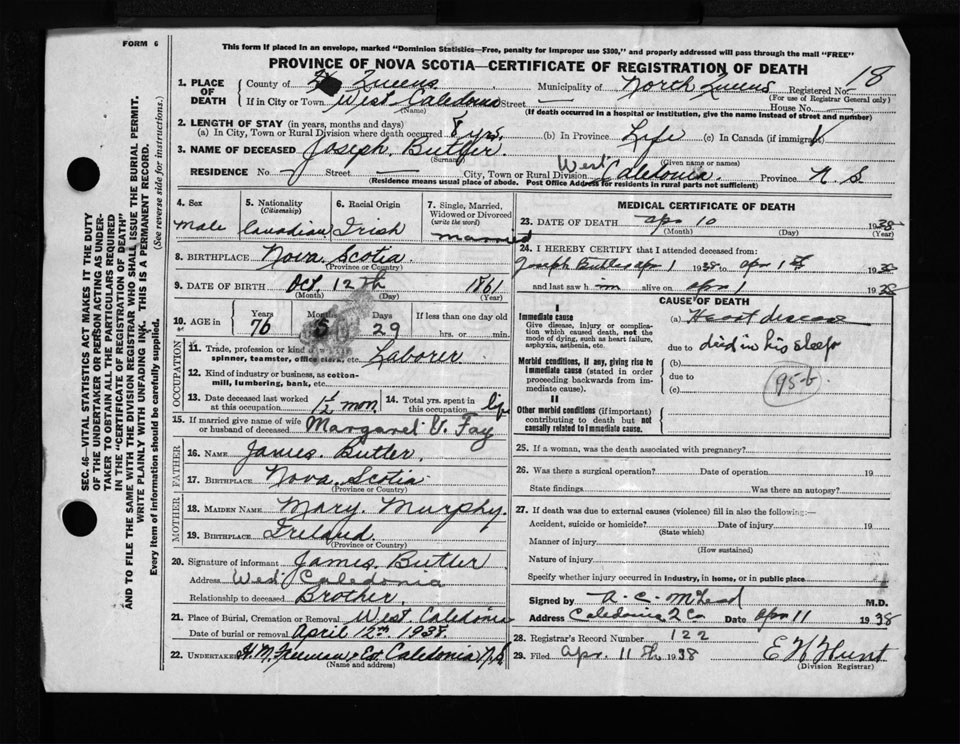 FORM 6
This form if placed in an envelope, marked "Dominion Statistics—Free, penalty for improper use $300," and properly addressed will pass through the mail "FREE"
PROVINCE OF NOVA SCOTIA—CERTIFICATE OF REGISTRATION OF DEATH
18
1. PLACE OF DEATH
County of Queens Municipality of North Queens Registered No.
(For use of Registrar General only)
If in City or Town West Caledonia Street — House No. —
(Name)
(If death occurred in a hospital or institution, give the name instead of street and number)
2. LENGTH OF STAY (in years, months and days)
(a) In City, Town or Rural Division where death occurred 8 yrs. (b) In Province Life (c) In Canada (if immigrant)
3. NAME OF DECEASED Joseph. Butler.
(Surname) (Given name or names)
RESIDENCE No — Street — City, Town or Rural Division West Caledonia. Province N. S.
(Residence means usual place of abode. Post Office Address for residents in rural parts not sufficient)
4. Sex
Male
5. Nationality
(Citizenship)
Canadian
6. Racial Origin
Irish
7. Single, Married, Widowed or Divorced
(write the word)
married
8. BIRTHPLACE Nova Scotia
(Province or Country)
9. DATE OF BIRTH Oct. 12th 1861
(Month) (Day) (Year)
10. AGE in
Years 76
Months 5
Days 29
If less than one day old
hrs. or min.
OCCUPATION
11. Trade, profession or kind of work, as spinner, teamster, office clerk, etc. Laborer
12. Kind of industry or business, as cotton-mill, lumbering, bank, etc.
13. Date deceased last worked at this occupation 12 mon
14. Total yrs. spent in this occupation life
15. If married give name of wife or husband of deceased Margaret V. Fay
FATHER
16. NAME James Butler.
17. BIRTHPLACE Nova Scotia
(Province or Country)
MOTHER
18. MAIDEN NAME Mary Murphy.
19. BIRTHPLACE Ireland.
(Province or Country)
20. Signature of informant James Butler
Address West Caledonia
Relationship to deceased Brother
21. Place of Burial, Cremation or Removal West Caledonia
Date of burial or removal April 12th 1938.
22. UNDERTAKER H. M. Freeman, Caledonia N.S.
(Name and address)
MEDICAL CERTIFICATE OF DEATH
23. DATE OF DEATH Apr 10 1938
(Month) (Day) (Year)
24. I HEREBY CERTIFY that I attended deceased from:
Joseph Butler apr 1 1938 to apr 1 1938
and last saw him alive on apr 1 1938
CAUSE OF DEATH
I
Immediate cause
Give disease, injury or complication which caused death, not the mode of dying, such as heart failure, asphyxia, asthenia, etc.
(a) Heart disease
due to died in his sleep
Morbid conditions, if any, giving rise to immediate cause (stated in order proceeding backwards from immediate cause).
(b)
due to
(c)
95-b
II
Other morbid conditions (if important) contributing to death but not causally related to immediate cause.
25. If a woman, was the death associated with pregnancy?
26. Was there a surgical operation? Date of operation 19
State findings Was there an autopsy?
27. If death was due to external causes (violence) fill in also the following:—
Accident, suicide or homicide? Date of injury 19
(State which)
Manner of injury
(How sustained)
Nature of injury
Specify whether injury occurred in industry, in home, or in public place
Signed by A. C. McLeod M.D.
Address Caledonia Q Co Date Apr 11 1938
28. Registrar's Record Number 122
29. Filed Apr. 11th 1938 E W Hunt
(Division Registrar)
SEC. 46—VITAL STATISTICS ACT MAKES IT THE DUTY
OF THE UNDERTAKER OR PERSON ACTING AS UNDER-
TAKER TO OBTAIN ALL THE PARTICULARS REQUIRED
IN THE "CERTIFICATE OF REGISTRATION OF DEATH"
AND TO FILE THE SAME WITH THE DIVISION REGISTRAR WHO SHALL ISSUE THE BURIAL PERMIT.
WRITE PLAINLY WITH UNFADING INK. THIS IS A PERMANENT RECORD.
Every item of information should be carefully supplied. (See reverse side for instructions.)